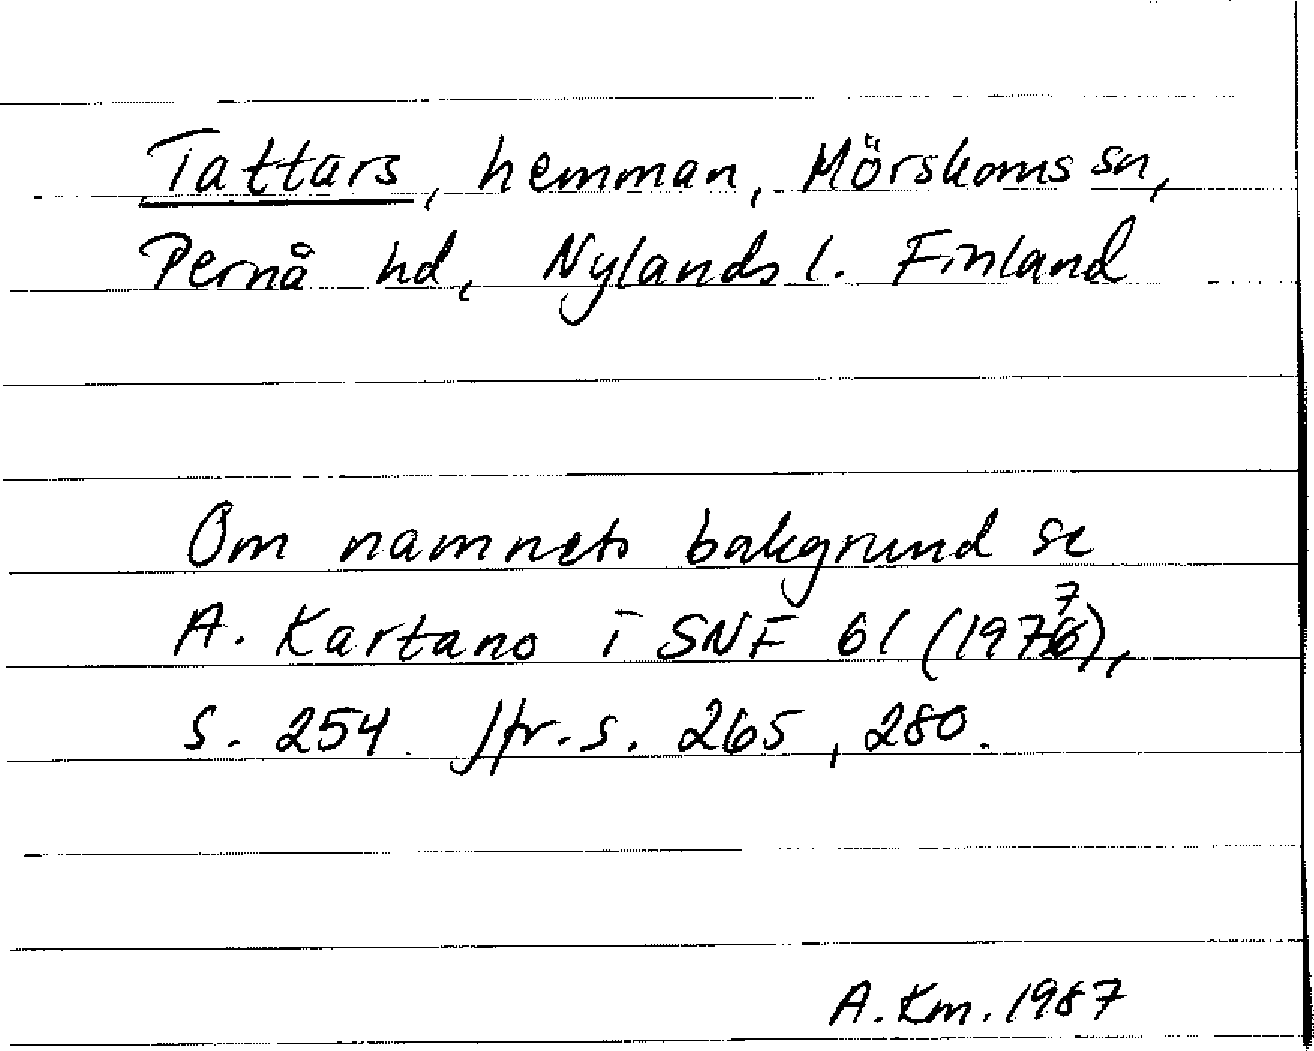 Tattars, hemman, Mörskoms sn,
Pernå hd, Nylands l. Finland
Om namnets bakgrund se
A. Kartano i SNF 61 (1977),
s. 254. Jfr. s. 265, 280.
A. Km. 1987